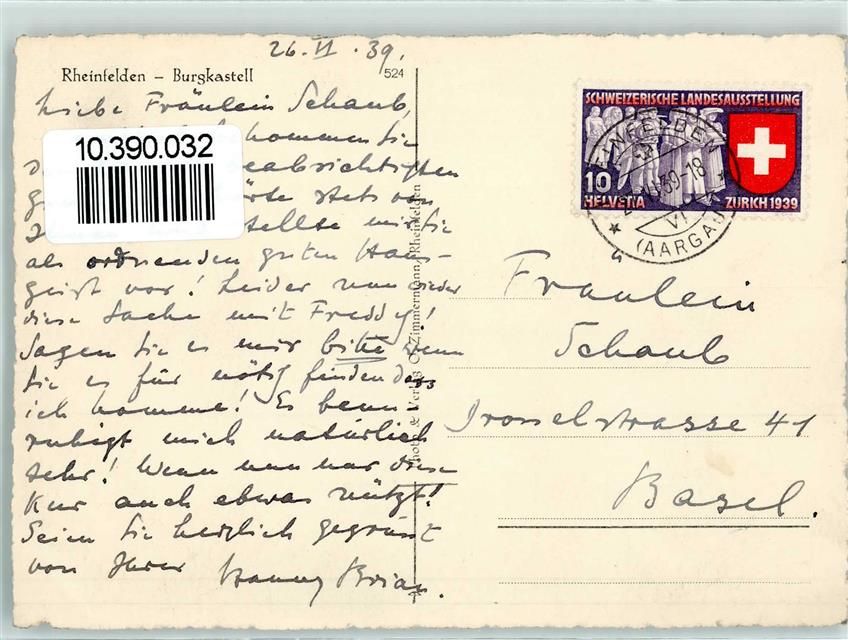 26. VI. 39.
Rheinfelden – Burgkastell
524
Liebe Fräulein Schaub,
kommen Sie
beabsichtigten
stets von
stelle mir Sie
als ordnenden guten Haus-
geist vor! Leider nun wieder
diese Sache mit Freddy!
Sagen Sie es mir bitte wenn
Sie es für nötig finden dass
ich komme! Es beun-
ruhigt mich natürlich
sehr! Wenn nun nur diese
Kur auch etwas nützt!
Seien Sie herzlich gegrüsst
von Ihrer Hanny
10.390.032
Photo & Verlag O. Zimmermann, Rheinfelden
SCHWEIZERISCHE LANDESAUSSTELLUNG
10
HELVETIA
ZÜRICH 1939
RHEINFELDEN
39-18
VI
(AARGAU)
Fräulein
Schaub
Drosselstrasse 41
Basel.